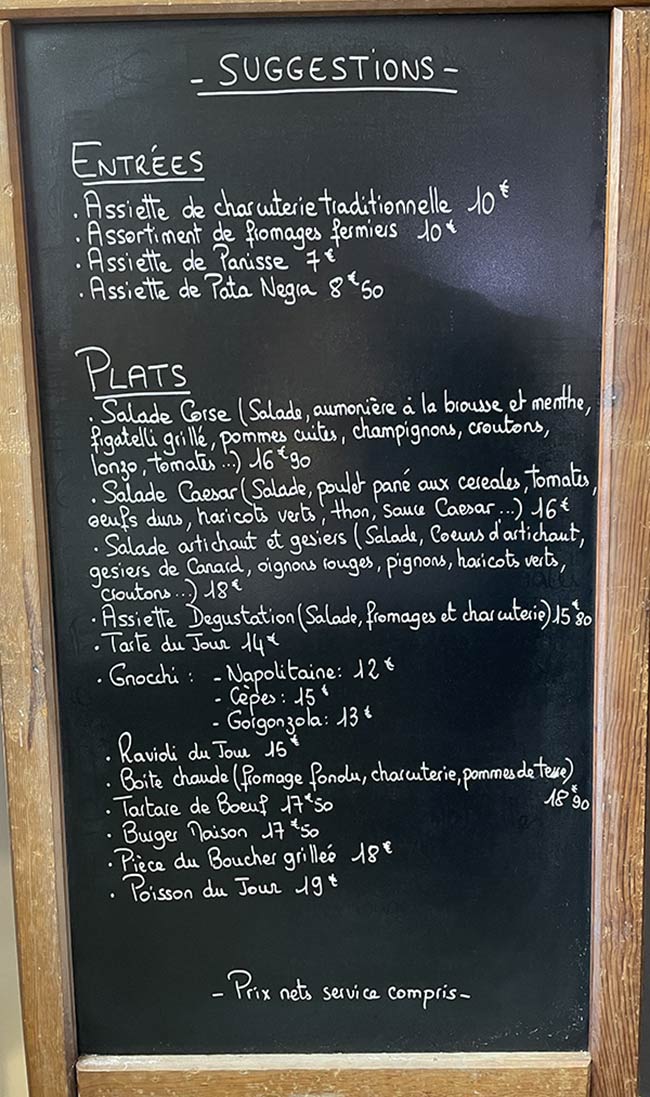 - SUGGESTIONS -
ENTRÉES
. Assiette de charcuterie traditionnelle 10€
. Assortiment de fromages fermiers 10€
. Assiette de Panisse 7€
. Assiette de Pata Negra 8€50
PLATS
. Salade Corse (Salade, aumonière à la brousse et menthe,
figatelli grillé, pommes cuites, champignons, croutons,
lonzo, tomates...) 16€90
. Salade Caesar (Salade, poulet pané aux cereales, tomates,
oeufs durs, haricots verts, thon, sauce Caesar...) 16€
. Salade artichaut et gesiers (Salade, Coeurs d'artichaut,
gesiers de Canard, oignons rouges, pignons, haricots verts,
croutons...) 18€
. Assiette Degustation (Salade, fromages et charcuterie) 15€80
. Tarte du Jour 14€
. Gnocchi : - Napolitaine : 12€
- Cèpes : 15€
- Gorgonzola : 13€
. Ravioli du Jour 15€
. Boite chaude (fromage fondu, charcuterie, pommes de terre)
18€90
. Tartare de Boeuf 17€50
. Burger Maison 17€50
. Pièce du Boucher grillée 18€
. Poisson du Jour 19€
- Prix nets service compris -